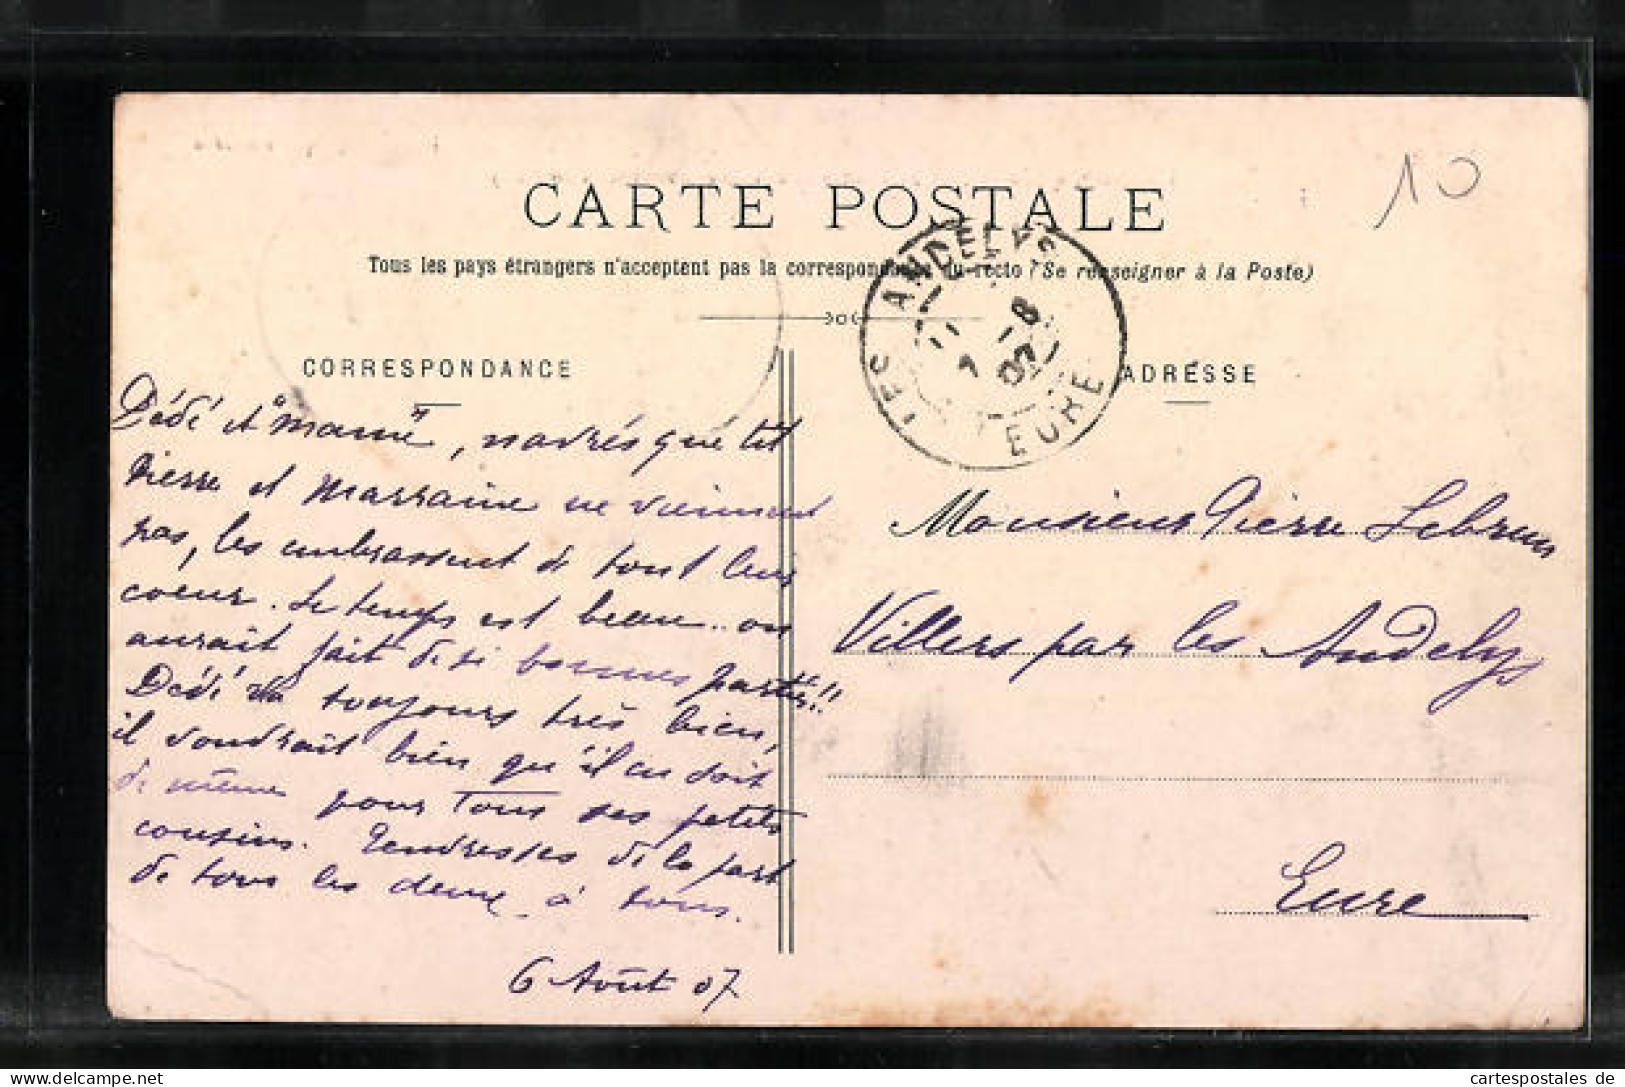 10
CARTE POSTALE
Tous les pays étrangers n'acceptent pas la correspondance du recto (Se renseigner à la Poste)
LES ANDELYS
7 - 8
07
EURE
CORRESPONDANCE
ADRESSE
Dédé et "Mamie", navrés que tit
Pierre et Marraine ne viennent
pas, les embrassent de tout leur
coeur. Le temps est beau.. on
aurait fait de si bonnes parties!!
Dédé va toujours très bien,
il voudrait bien qu'il en soit
de même pour Tous ses petits
cousins. Tendresses de la part
de tous les deux à tous.
6 Août 07
Monsieur Pierre Lebrun
Villers par les Andelys
Eure
hippostcard
cartespostales de